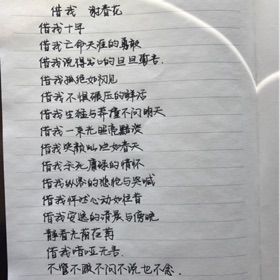 借我 谢春花
借我十年
借我亡命天涯的勇敢
借我说得出口的旦旦誓言.
借我孤绝如初见
借我不惧碾压的鲜活
借我生猛与莽撞不问明天
借我一束光照亮黯淡
借我笑颜灿烂如春天
借我杀死庸碌的情怀
借我纵容的悲怆与哭喊
借我怦然心动如往昔
借我安适的清晨与傍晚
静看光阴荏苒
借我喑哑无言
不管不顾不问不说也不念.